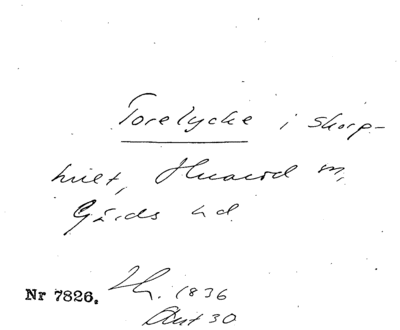 Torelycke i skorp-
hult, Huaröd sn,
Gärds hd.
Nr 7826. Lh. 1836
Akt 30